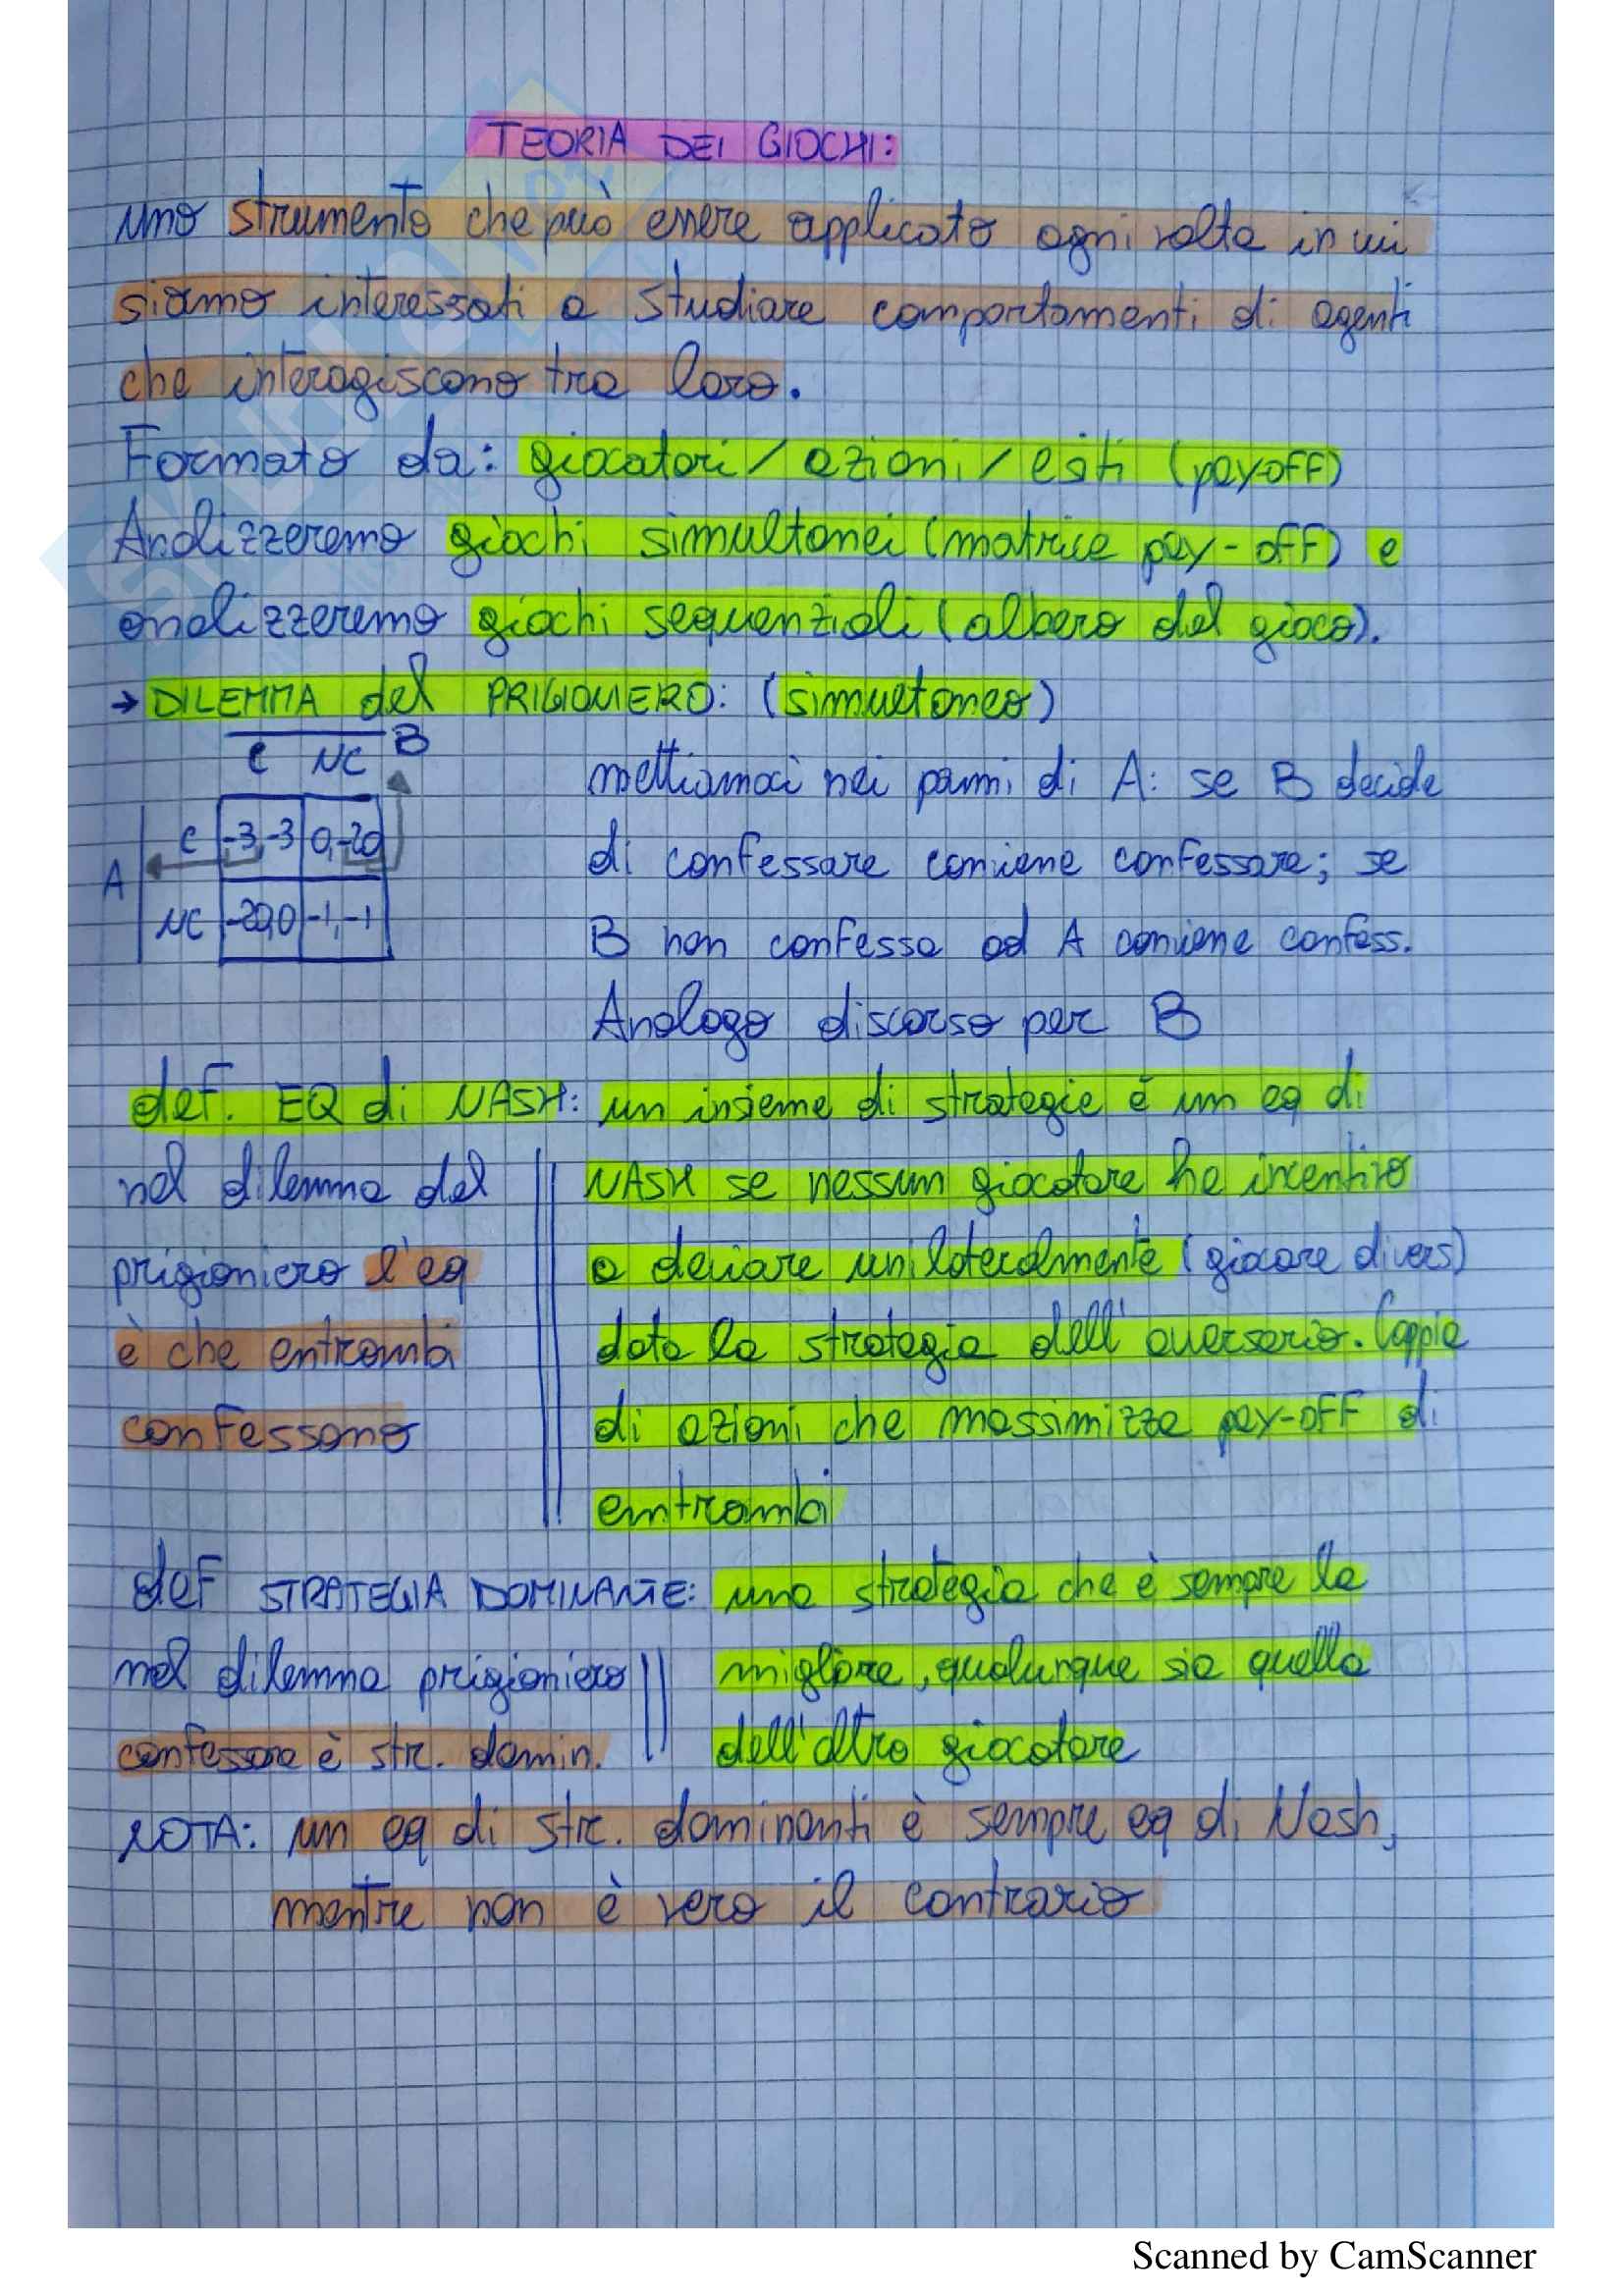 TEORIA DEI GIOCHI:
uno strumento che può essere applicato ogni volta in cui
siamo interessati a studiare comportamenti di agenti
che interagiscono tra loro.
Formato da: giocatori / azioni / esiti (pay-off)
Analizzeremo giochi simultanei (matrice pay-off) e
analizzeremo giochi sequenziali (albero del gioco).
→ DILEMMA del PRIGIONIERO: (simultaneo)
C NC B
A
C -3,-3 0,-20
NC -20,0 -1,-1
mettiamoci nei panni di A: se B decide
di confessare conviene confessare; se
B non confessa ad A conviene confess.
Analogo discorso per B
def. EQ di NASH: un insieme di strategie è un eq di
NASH se nessun giocatore ha incentivo
a deviare unilateralmente (giocare divers)
data la strategia dell'avversario. Coppia
di azioni che massimizza pay-off di
entrambi
nel dilemma del
prigioniero l'eq
è che entrambi
confessano
def STRATEGIA DOMINANTE: una strategia che è sempre la
migliore, qualunque sia quella
dell'altro giocatore
nel dilemma prigioniero
confessare è str. domin.
NOTA: un eq di str. dominanti è sempre eq di Nash,
mentre non è vero il contrario
Scanned by CamScanner